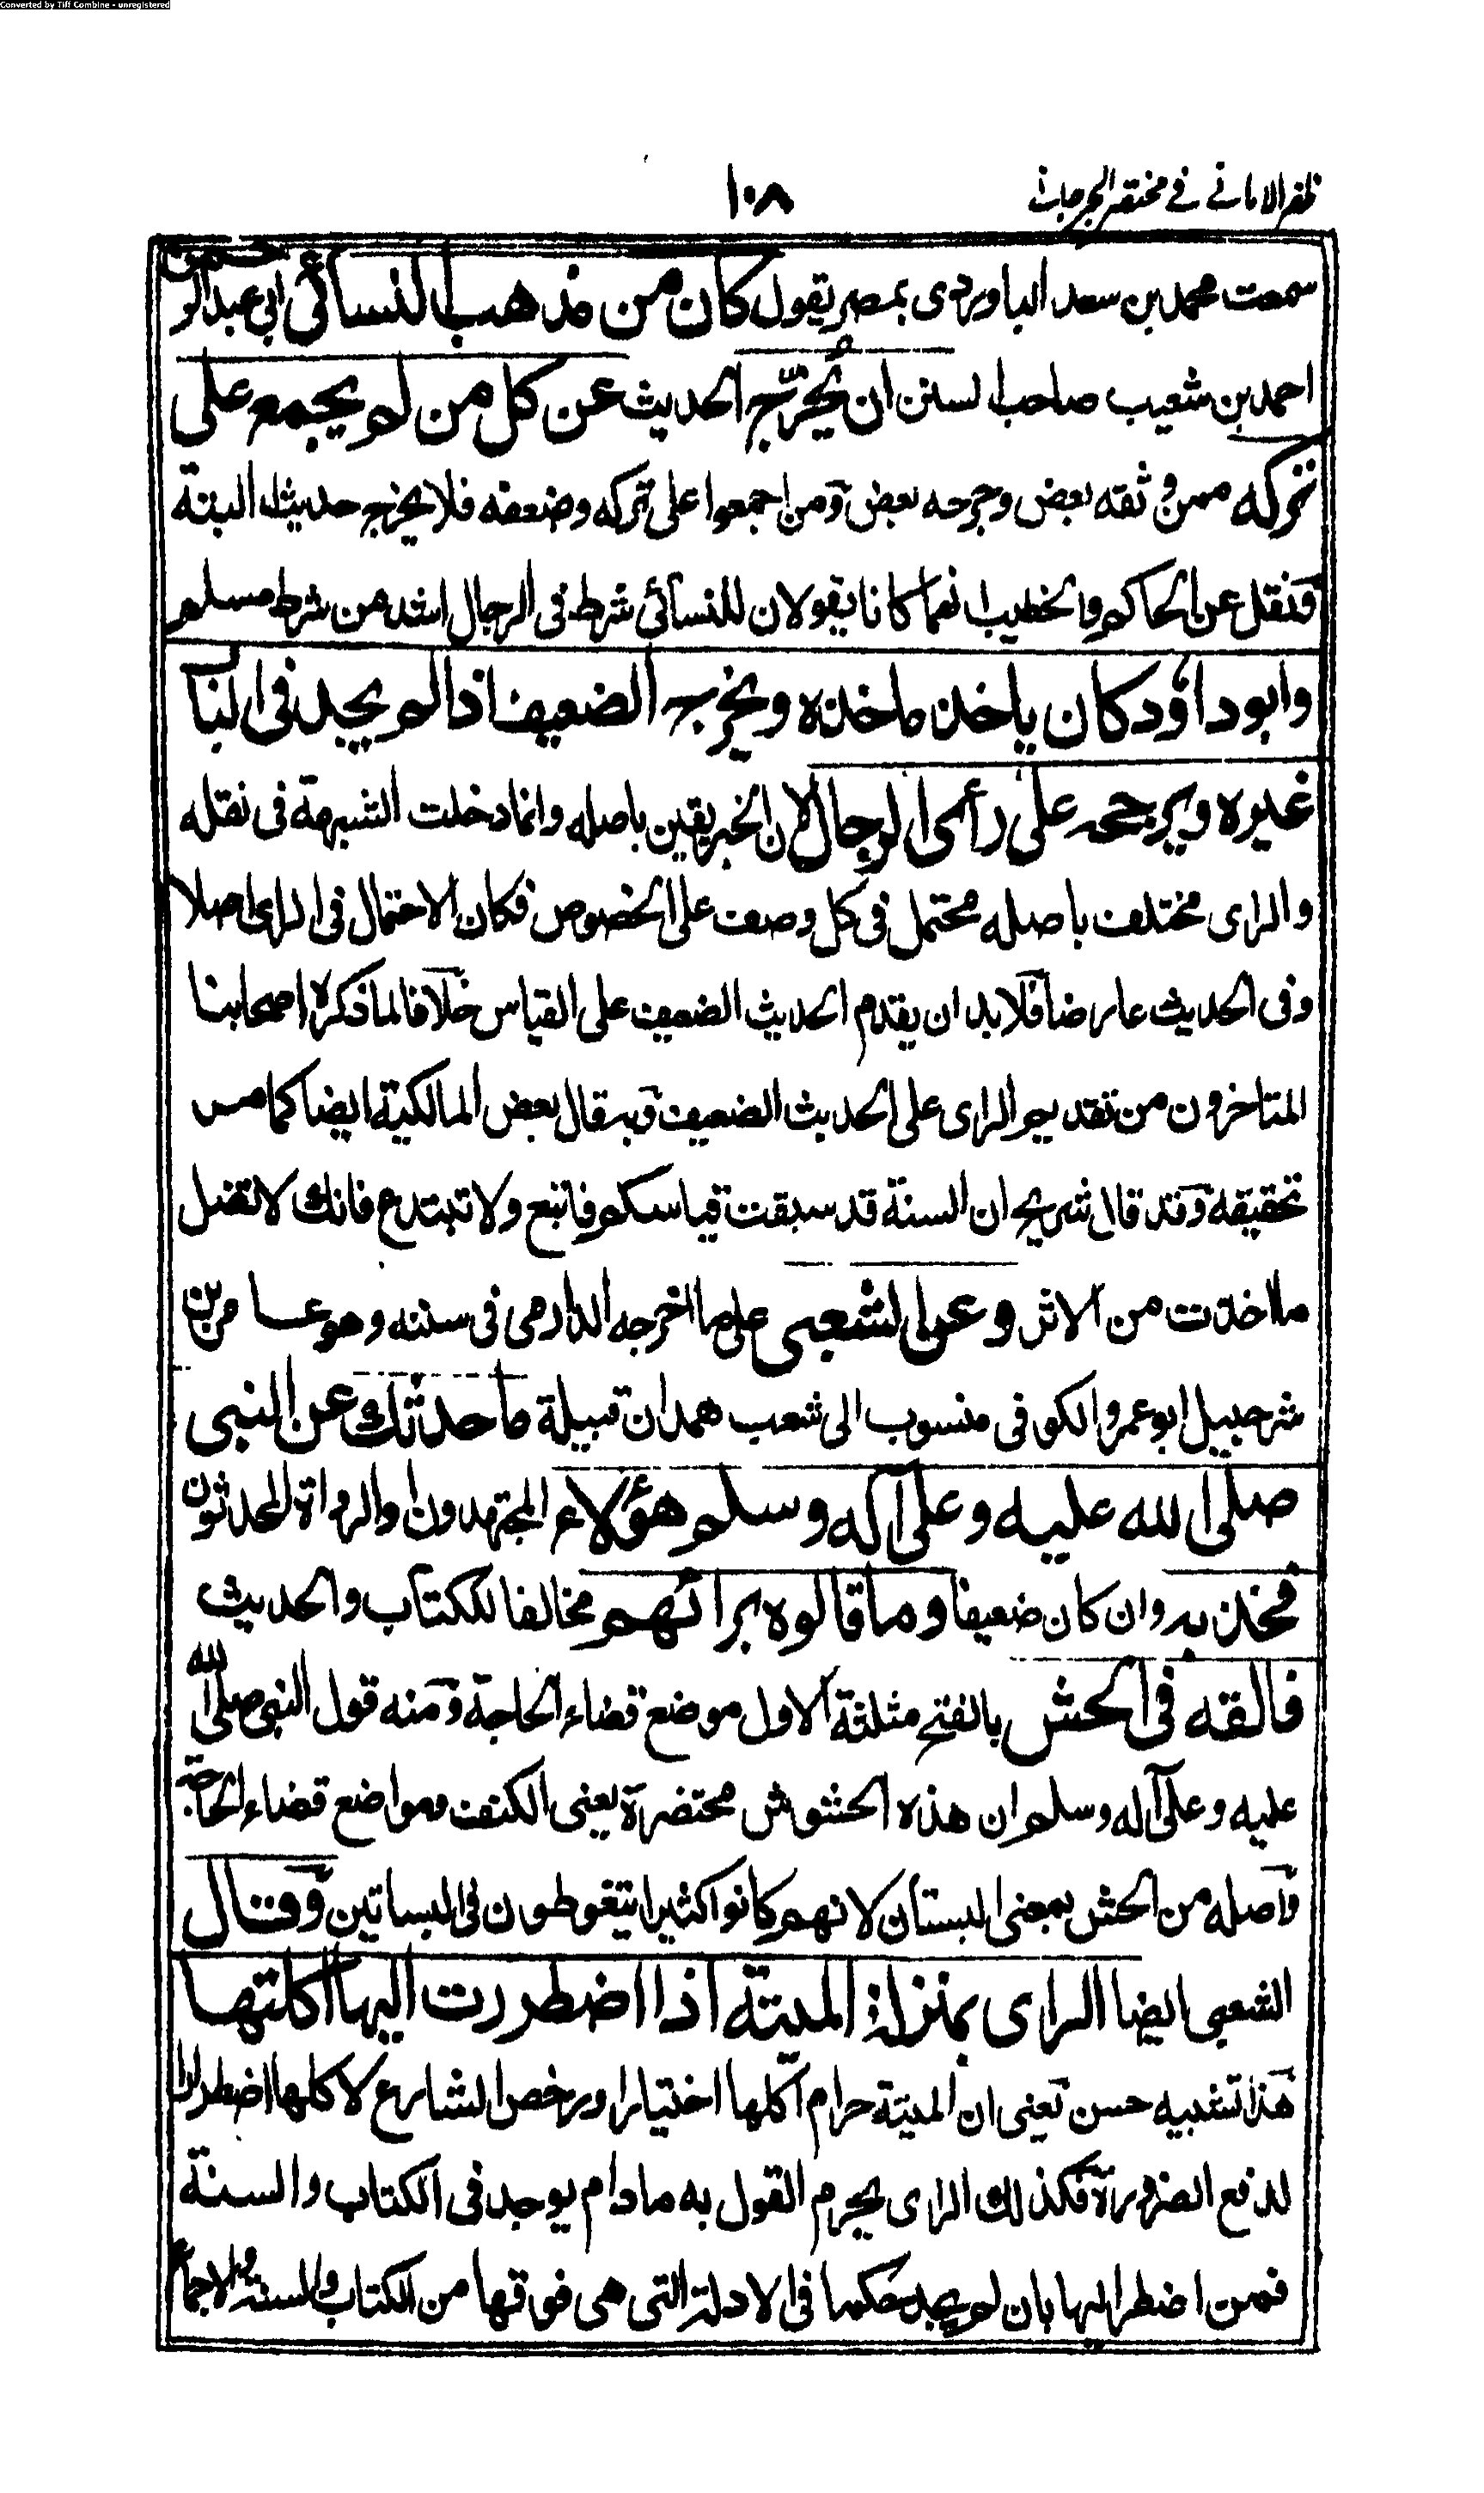 Converted by Tiff Combine - unregistered
ظفر الامانے فے مختصر الجرجانے
۱۰۸
سمعت محمد بن سعد الباوردی بمصر یقول کان من مذهب النسائی ابی عبد الرحمن
احمد بن شعیب صاحب السنن ان یُخرّج الحدیث عن کل من لم یجمع علی
ترکه ممن وثقه بعض وجرحه بعض ومن اجمعوا علی ترکه وضعفه فلا یخرج حدیثه البتة
ونقل عن الحاکم والخطیب انهما کانا یقولان للنسائی شرط فی الرجال اشد من شرط مسلم
وابو داؤد کان یاخذ ماخذه ویخرج الضعیف اذا لم یجد فی الباب
غیره ویرجحه علی رأی الرجال لان الخبر یقین باصله وانما دخلت الشبهة فی نقله
والرای مختلف باصله محتمل فی کل وصف علی الخصوص فکان الاحتمال فی الرای اصلا
وفی الحدیث عارضا فلا بد ان یقدم الحدیث الضعیف علی القیاس خلافا لما ذکره اصحابنا
المتاخرون من تقدیم الرای علی الحدیث الضعیف وبه قال بعض المالکیة ایضا کما مر
تحقیقه وقد قال شریح ان السنة قد سبقت قیاسکم فاتبع ولا تبتدع فانك لا تضل
ما اخذت من الاثر وعن الشعبی علی ما اخرجه الدارمی فی سننه وهو عامر بن
شرحبیل ابو عمرو الکوفی منسوب الی شعب همدان قبیلة ما حدثك عن النبی
صلی الله علیه وعلی آله وسلم هؤلاء المجتهدون او الرواة المحدثون
فخذ به وان کان ضعیفا وما قالوه برائهم مخالفا للکتاب والحدیث
فالقه فی الحش بالفتح مثلثة الاول موضع قضاء الحاجة ومنه قول النبی صلی الله
علیه وعلی آله وسلم ان هذه الحشوش محتضرة یعنی الکنف ومواضع قضاء الحاجة
واصله من الحش بمعنی البستان لانهم کانوا کثیرا یتغوطون فی البساتین وقال
الشعبی ایضا الرای بمنزلة المیتة اذا اضطررت الیها اکلتها
هذا تشبیه حسن یعنی ان المیتة حرام اکلها اختیارا ورخص الشارع لاکلها اضطرارا
لدفع الضرورة فکذلك الرای یحرم القول به ما دام یوجد فی الکتاب والسنة
فمن اضطر الیها بان لم یجد حکما فی الادلة التی هی فوقها من الکتاب والسنة والاجماع